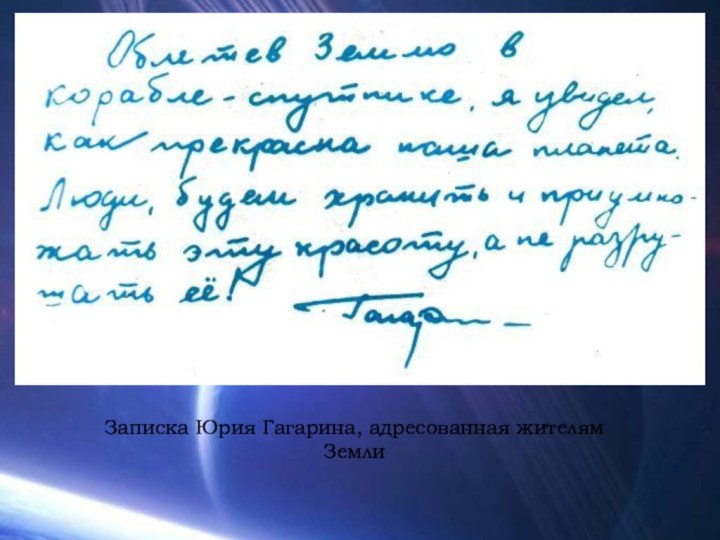 Облетев Землю в
корабле-спутнике, я увидел,
как прекрасна наша планета.
Люди, будем хранить и приумно-
жать эту красоту, а не разру-
шать её!
Гагарин
Записка Юрия Гагарина, адресованная жителям
Земли